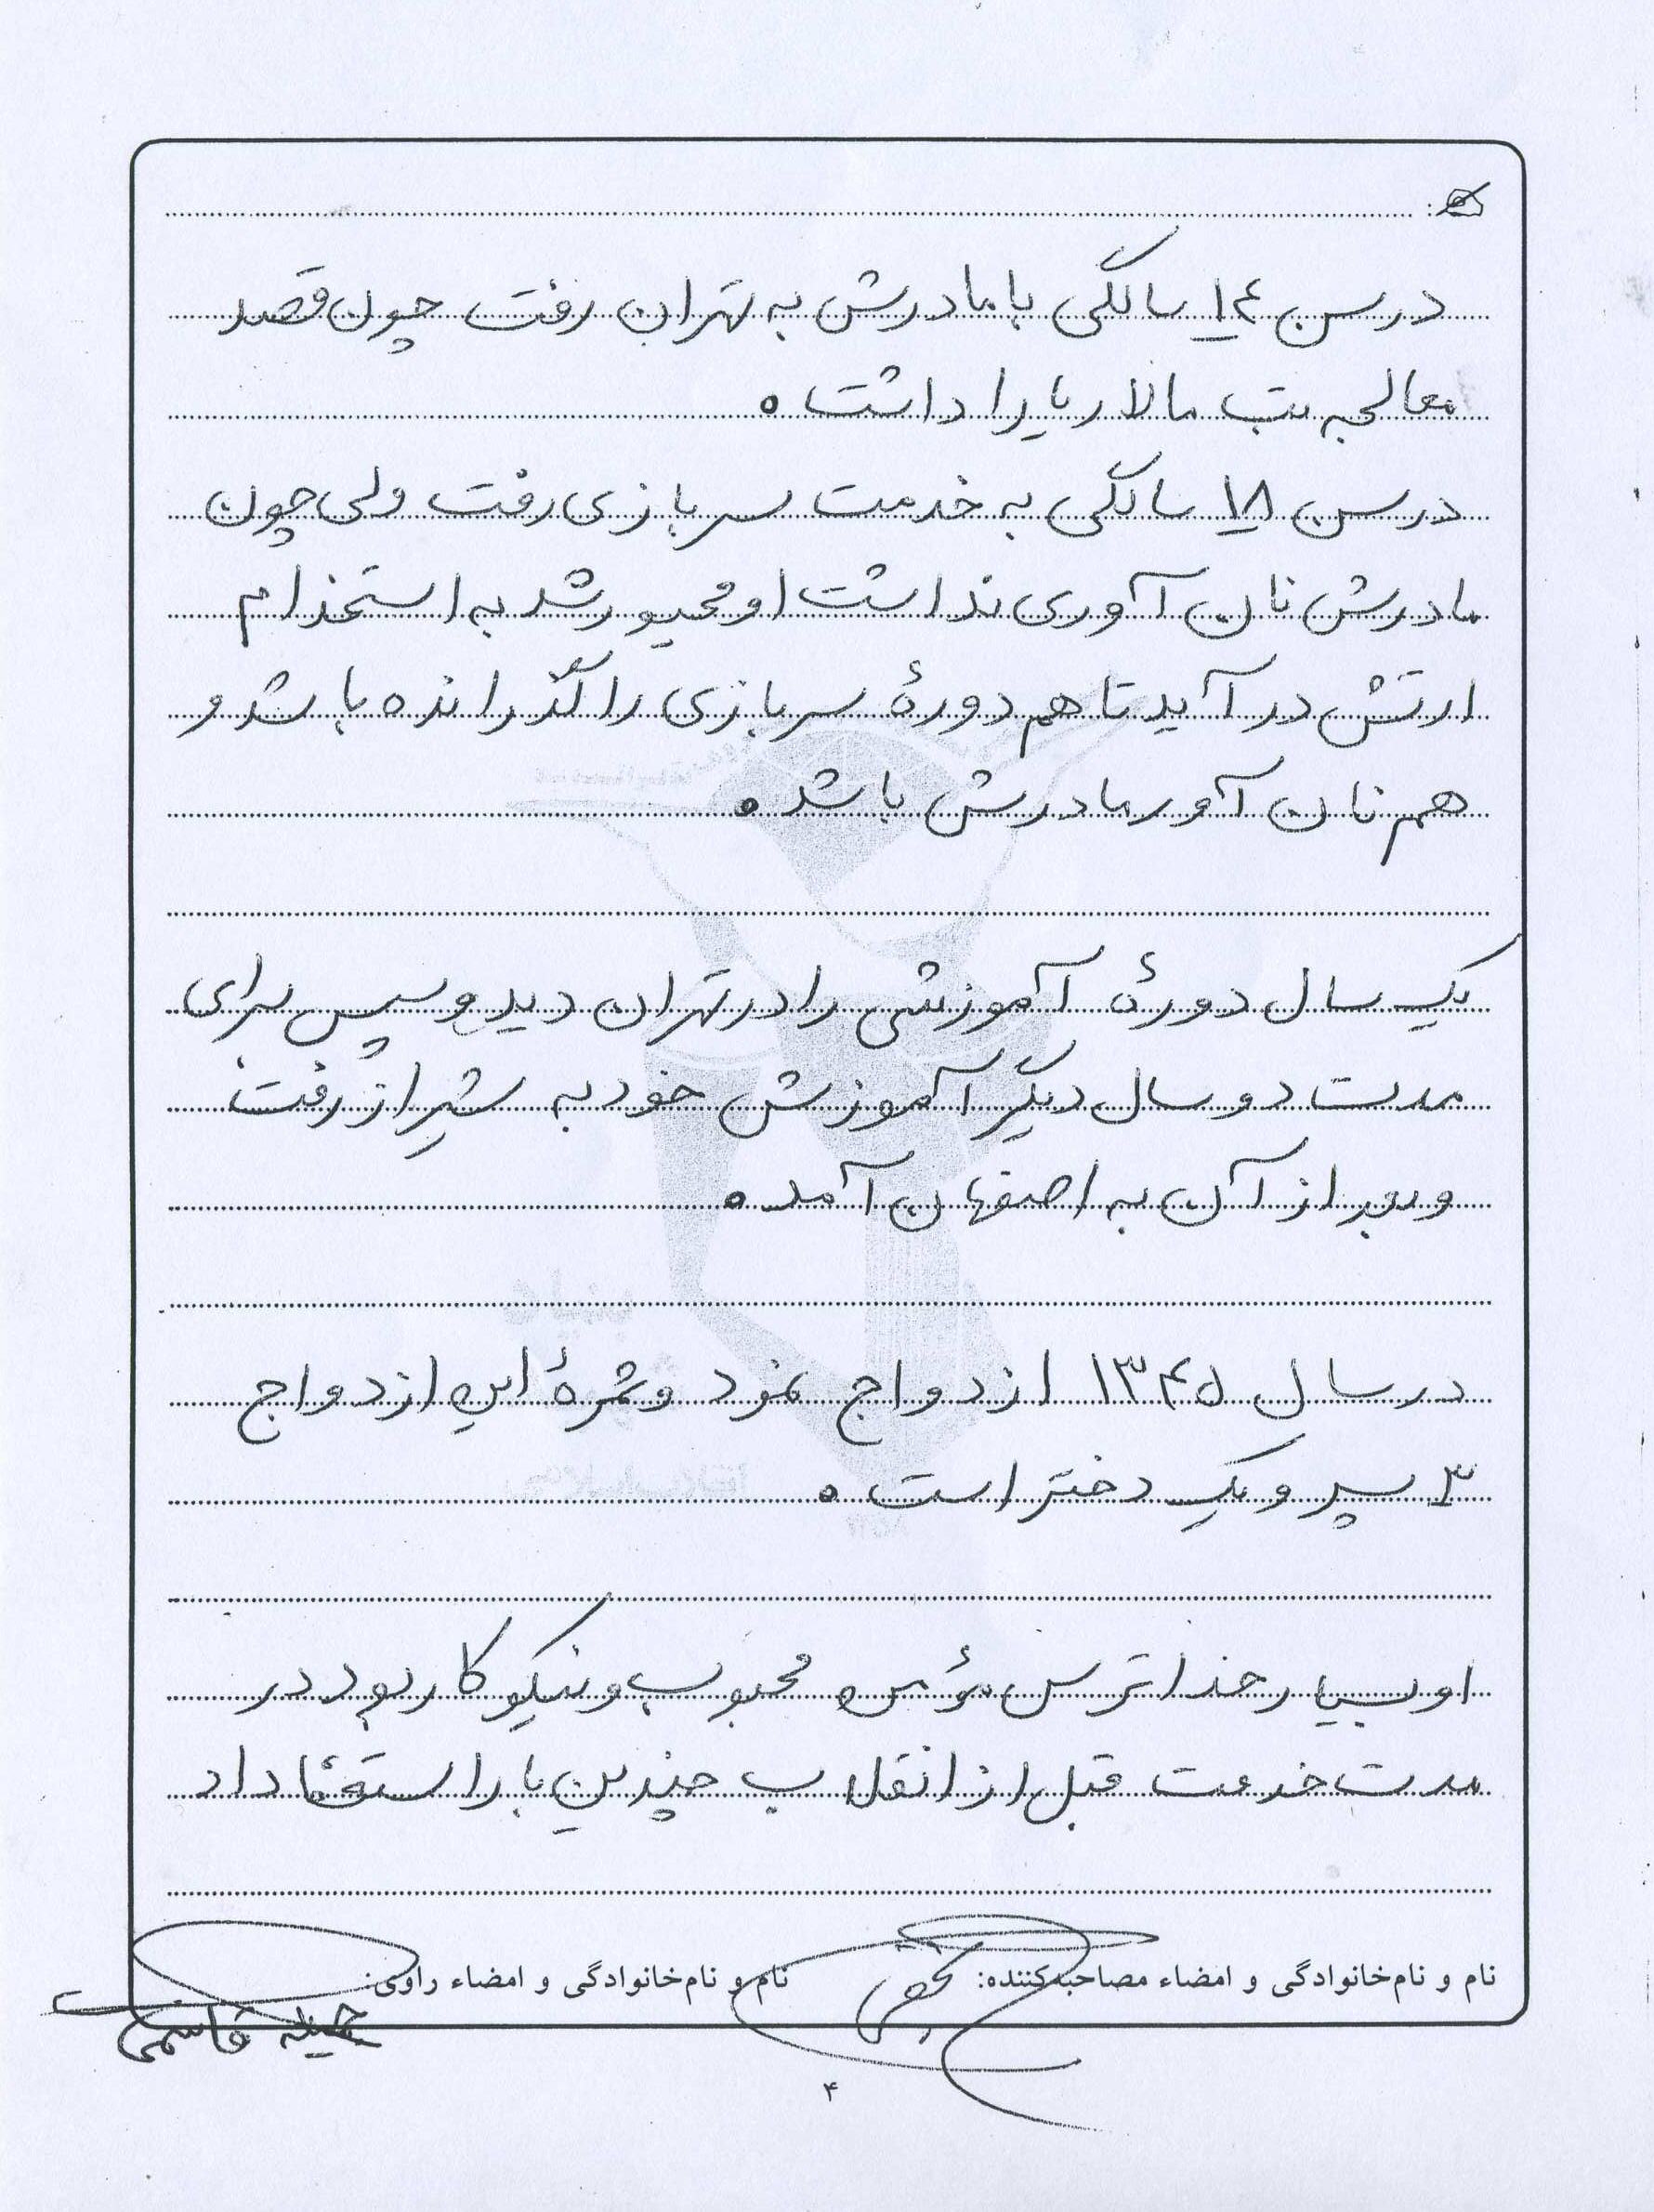 در سن ۱۴ سالگی با مادرش به تهران رفت چون قصد
معالجه تب مالاریا را داشت.
در سن ۱۸ سالگی به خدمت سربازی رفت ولی چون
مادرش نان آوری نداشت او مجبور شد به استخدام
ارتش در آید تا هم دورهٔ سربازی را گذرانده باشد و
هم نان آور مادرش باشد.
یک سال دورهٔ آموزشی را در تهران دید و سپس برای
مدت دو سال دیگر آموزش خود به شیراز رفت
و بعد از آن به اصفهان آمد.
در سال ۱۳۴۵ ازدواج نمود و ثمرهٔ این ازدواج
۳ پسر و یک دختر است.
او بسیار خداترس مؤمن محبوب و نیکوکار بود در
مدت خدمت قبل از انقلاب چندین بار استعفا داد
نام و نام‌خانوادگی و امضاء مصاحبه‌کننده: نام و نام‌خانوادگی و امضاء راوی:
جمیله قاسمی
۴